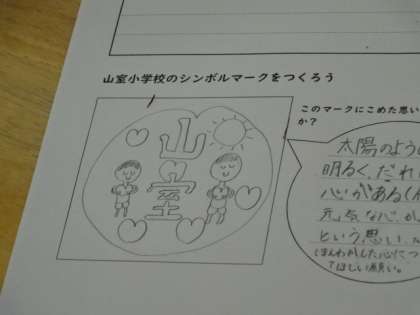 山室小学校のシンボルマークをつくろう
山
室
このマークにこめた思い
か？
太陽のよう
明るく、だれ
心がある
元気な心
という思い
ほんわかした心につ
てほしい願い。